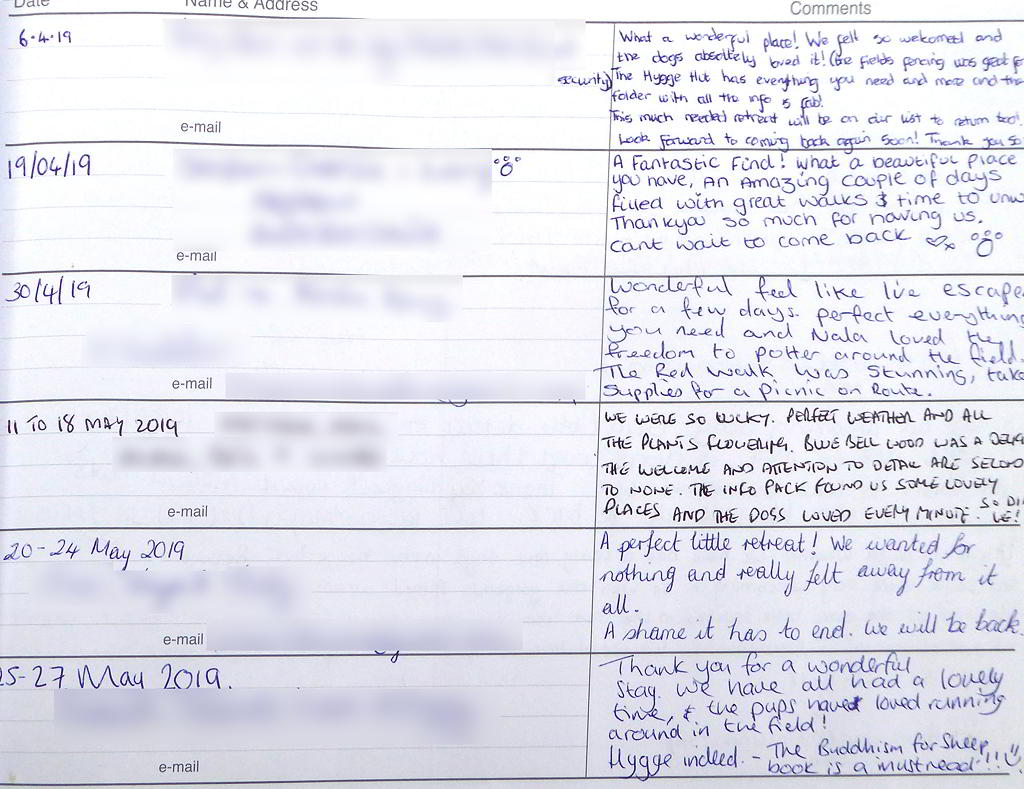 Date Name & Address Comments
6.4.19
What a wonderful place! We felt so welcomed and
the dogs absolutely loved it! (the fields fencing was great for
security) The Hygge Hut has everything you need and more and the
folder with all the info is fab!
This much needed retreat will be on our list to return too!
Look forward to coming back again soon! Thank you so
e-mail
19/04/19
A Fantastic Find! What a beautiful place
you have, An Amazing couple of days
filled with great walks & time to unw
Thankyou so much for having us.
Cant wait to come back
e-mail
30/4/19
Wonderful feel like I've escape
for a few days. perfect everything
you need and Nala loved the
freedom to potter around the field.
The Red Walk was Stunning, take
Supplies for a Picnic on Route.
e-mail
11 TO 18 MAY 2019
WE WERE SO LUCKY. PERFECT WEATHER AND ALL
THE PLANTS FLOWERING. BLUE BELL WOOD WAS A DELIG
THE WELCOME AND ATTENTION TO DETAIL ARE SECOND
TO NONE. THE INFO PACK FOUND US SOME LOVELY
PLACES AND THE DOGS LOVED EVERY MINUTE. SO DI
WE!
e-mail
20-24 May 2019
A perfect little retreat! We wanted for
nothing and really felt away from it
all.
A shame it has to end. We will be back.
e-mail
25-27 May 2019.
Thank you for a wonderful
stay. We have all had a lovely
time, & the pups have loved running
around in the field!
Hygge indeed. - The Buddhism for Sheep
book is a mustread!!!
e-mail